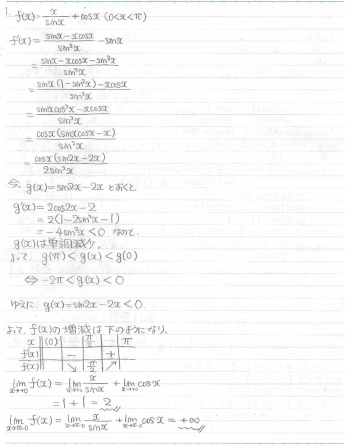 1. f(x) = x/sinx + cosx (0<x<π)
f'(x) = (sinx - xcosx)/sin²x - sinx
= (sinx - xcosx - sin³x)/sin²x
= (sinx(1-sin²x) - xcosx)/sin²x
= (sinxcos²x - xcosx)/sin²x
= cosx(sinxcosx - x)/sin²x
= cosx(sin2x - 2x)/2sin²x
今、g(x) = sin2x - 2x とおくと、
g'(x) = 2cos2x - 2
= 2(1 - 2sin²x - 1)
= -4sin²x < 0 なので
g(x)は単調減少。
よって g(π) < g(x) < g(0)
⇔ -2π < g(x) < 0
ゆえに g(x) = sin2x - 2x < 0.
よって、f(x)の増減は下のようになり、
x (0) π/2 π
f'(x) - +
f(x) ↘ π/2 ↗
lim x→+0 f(x) = lim x→+0 x/sinx + lim x→+0 cosx
= 1 + 1 = 2
lim x→π-0 f(x) = lim x→π-0 x/sinx + lim x→π-0 cosx = +∞